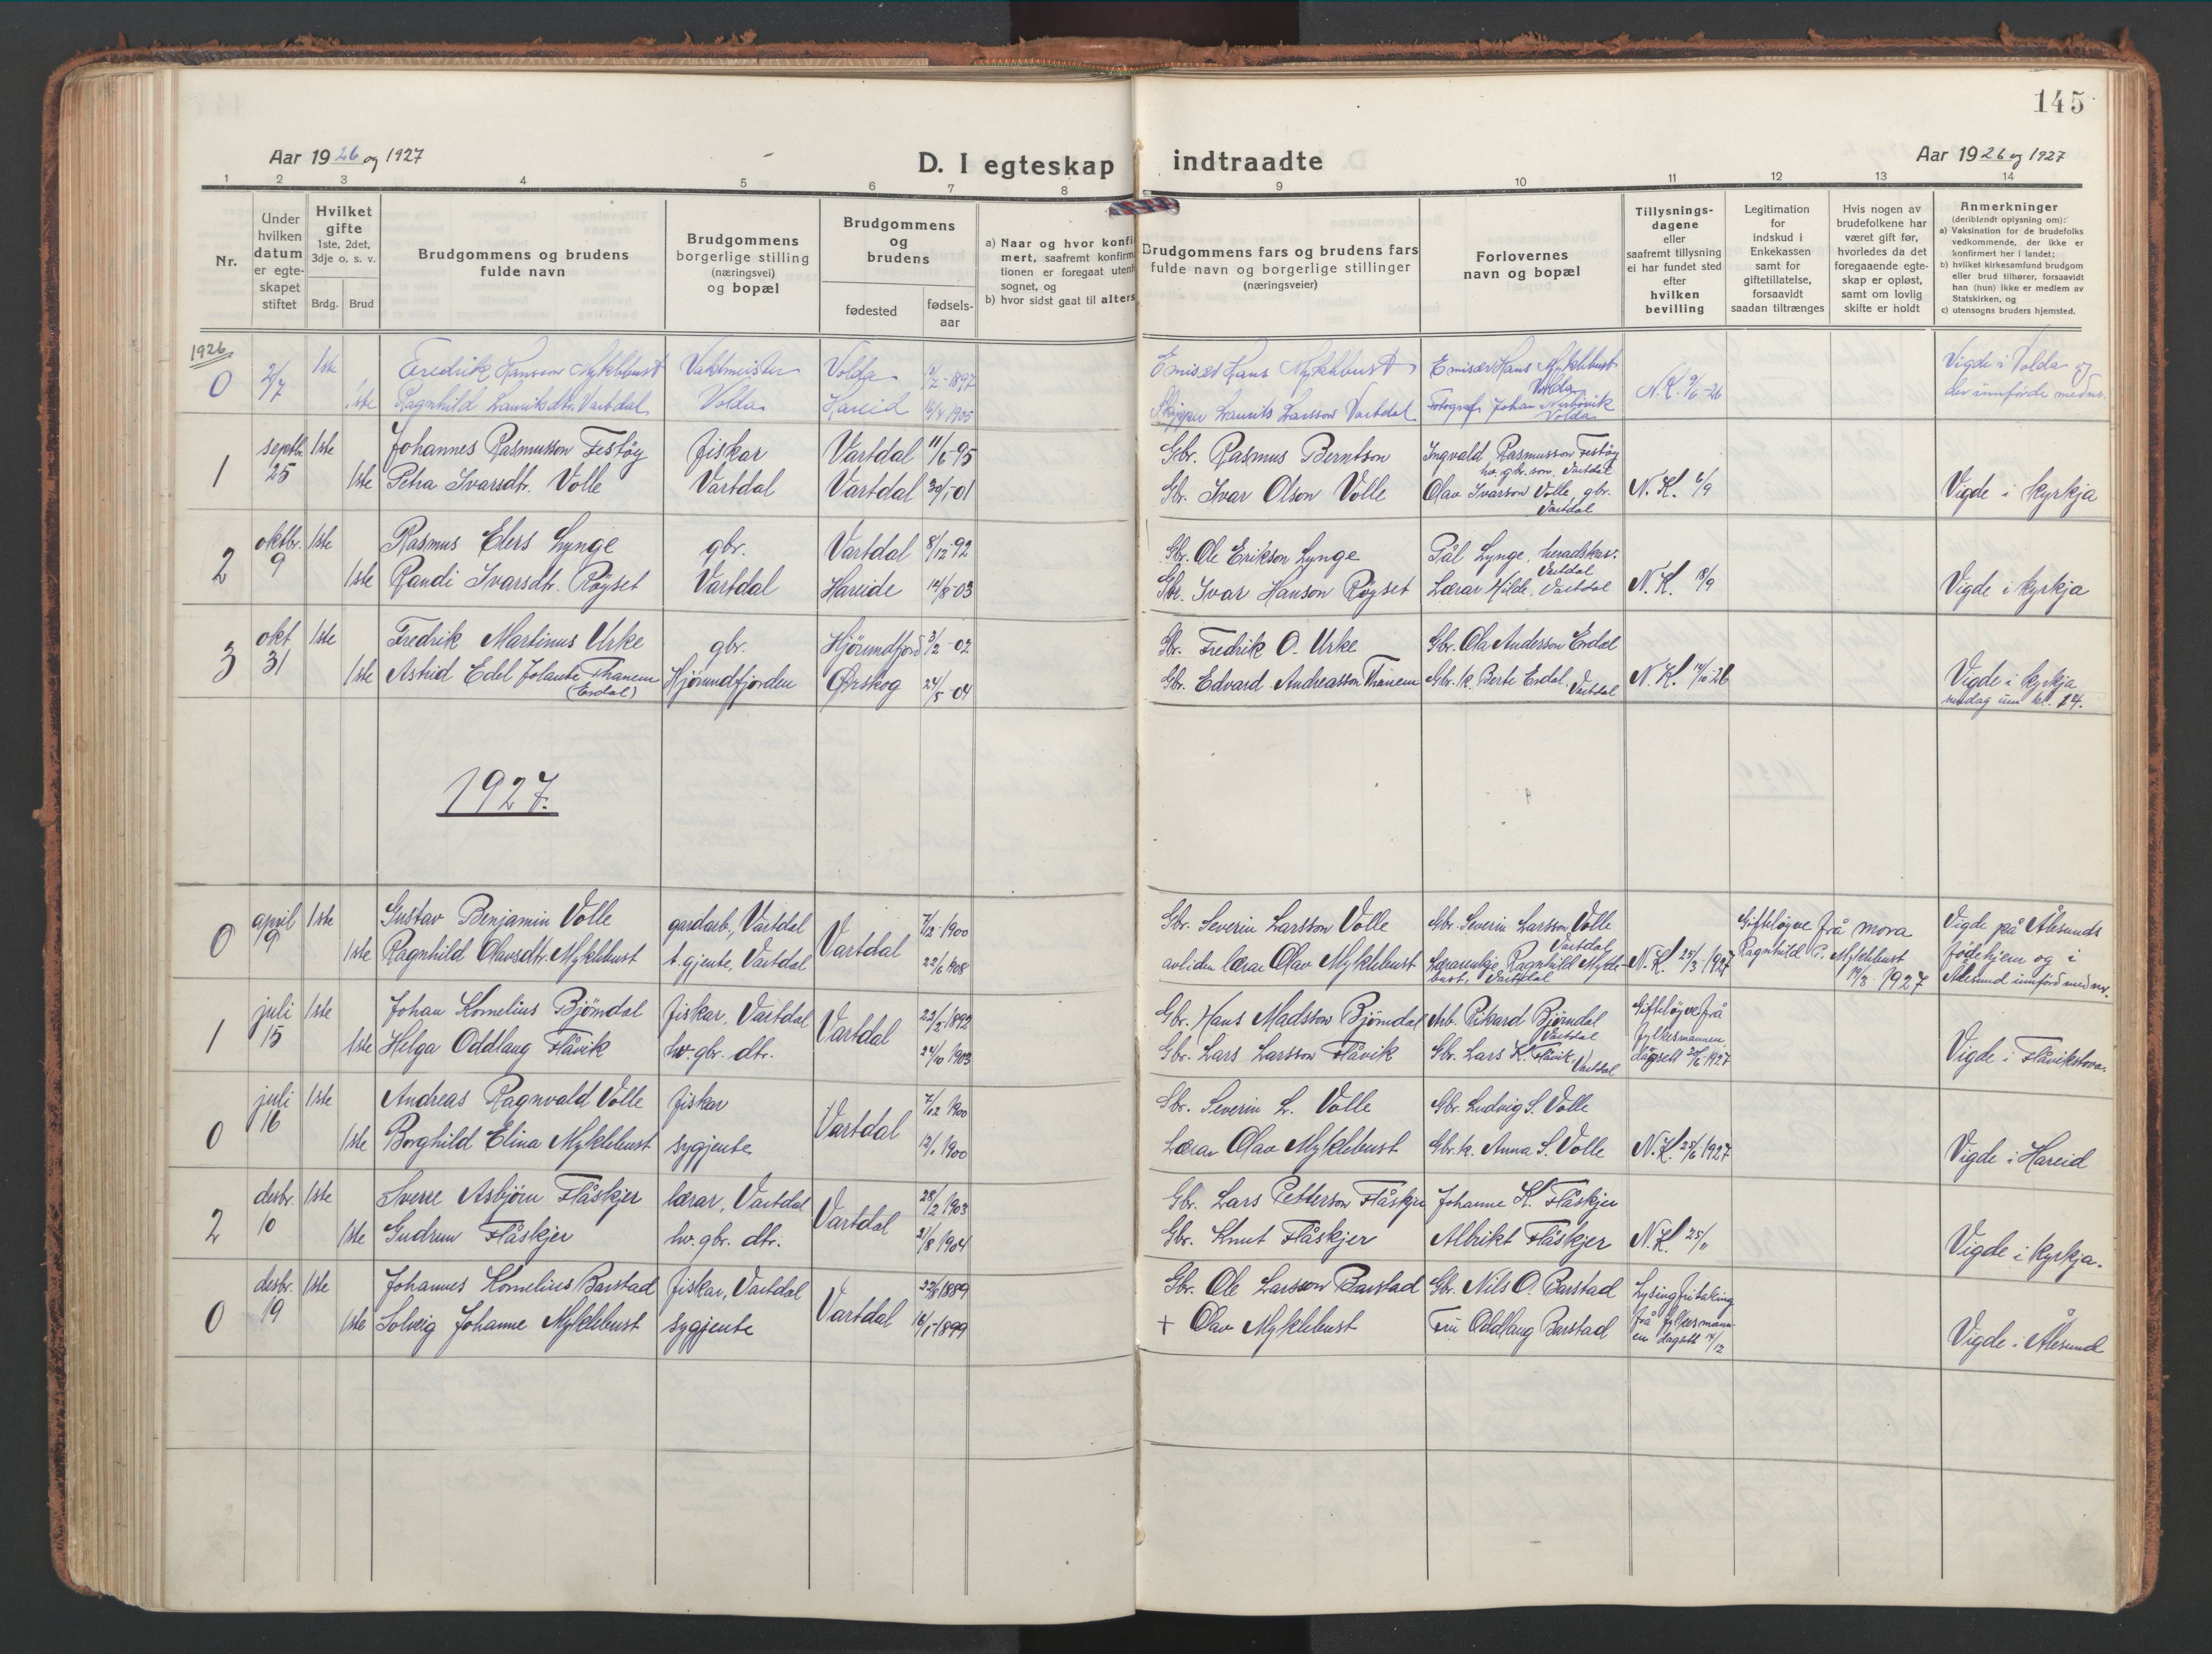 145
Aar 1926 og 1927
D. I egteskap indtraadte
Aar 1926 og 1927
1 2 3 4 5 6 7 8 9 10 11 12 13 14
Nr.
Under
hvilken
datum
er egte-
skapet
stiftet
Hvilket
gifte
1ste, 2det,
3dje o. s. v.
Brdg. Brud
Brudgommens og brudens
fulde navn
Brudgommens
borgerlige stilling
(næringsvei)
og bopæl
Brudgommens
og
brudens
fødested
fødsels-
aar
a) Naar og hvor konfi
mert, saafremt konfirm
tionen er foregaat utenf
sognet, og
b) hvor sidst gaat til alters
Brudgommens fars og brudens fars
fulde navn og borgerlige stillinger
(næringsveier)
Forlovernes
navn og bopæl
Tillysnings-
dagene
eller
saafremt tillysning
ei har fundet sted
efter
hvilken
bevilling
Legitimation
for
indskud i
Enkekassen
samt for
giftetillatelse,
forsaavidt
saadan tiltrænges
Hvis nogen av
brudefolkene har
været gift før,
hvorledes da det
foregaaende egte-
skap er opløst,
samt om lovlig
skifte er holdt
Anmerkninger
(deriblandt oplysning om):
a) Vaksination for de brudefolks
vedkommende, der ikke er
konfirmert her i landet;
b) hvilket kirkesamfund brudgom
eller brud tilhører, forsaavidt
han (hun) ikke er medlem av
Statskirken, og
c) utensogns bruders hjemsted.
1926
0 2/7 1ste Fredrik Hansson Myklebust Vaktmeister Volda 1897 Emisær Hans Myklebust Emisær Hans Myklebust Volda Vigde i Volda og
1ste Ragnhild Lauritsdtr. Vartdal Volda Hareid 1905 Skipper Laurits Larsson Vartdal Fotograf Johan Volda N. K. 9/6-26 der innførde med nr.
1 septbr. 25 1ste Johannes Rasmusson Festøy fiskar Vartdal 11/6-95 Gbr. Rasmus Berntson Ingvald Rasmusson Festøy hv. gbr. son, Vartdal
1ste Petra Ivarsdtr. Volle Vartdal Vartdal 30/1-01 Gbr. Ivar Olson Volle Olav Ivarson Volle, gbr. Vartdal N. K. 6/9 Vigde i kyrkja
2 oktbr. 9 1ste Rasmus Elers Lynge gbr. Vartdal 8/12-92 Gbr. Ole Erikson Lynge Pål Lynge, heradskas. Vartdal
1ste Randi Ivarsdtr. Røyset Vartdal Hareide 14/8-03 Gbr. Ivar Hanson Røyset Lærar Hilde, Vartdal N. K. 18/9 Vigde i kyrkja
3 okt. 31 1ste Fredrik Martinus Urke gbr. Hjørundfjord 3/2-02 Gbr. Fredrik O. Urke Gbr. Ola Anderson Erdal
1ste Astrid Edel Jolante Thanem (Erdal) Hjørundfjorden Ørskog 24/5 04 Gbr. Edvard Andreasson Thanem Gbr. k. Berte Erdal, Vartdal N. K. 14/10-26 Vigde i kyrkja
sundag um kl. 14.
1927.
0 april 9 1ste Gustav Benjamin Volle gardarb., Vartdal Vartdal 7/12-1900 Gbr. Severin Larsson Volle Gbr. Severin Larsson Volle Vartdal Gifteløyve frå mora Vigde på Ålesunds
1ste Ragnhild Olavsdtr. Myklebust t. gjente, Vartdal 22/6 1908 avliden lærar Olav Myklebust Lærarenkje Ragnhild Myklebust, Vartdal N. K. 25/3-1927 Ragnhild P. Myklebust 19/3 1927 fødehjem og i
Ålesund innførd med nr.
1 juli 15 1ste Johan Kornelius Bjørndal fiskar, Vartdal Vartdal 22/3-1892 Gbr. Hans Madsson Bjørndal Arb. Rikard Bjørndal Vartdal Gifteløyve frå
1ste Helga Oddlaug Flåvik hv. gbr. dtr. 24/10 1903 Gbr. Lars Larsson Flåvik Gbr. Lars K. Flåvik Vartdal fylkesmannen, dagsett 20/6-1927 Vigde i Flåvikstova.
0 juli 16 1ste Andreas Ragnvald Volle fiskar Vartdal 7/12 1900 Gbr. Severin L. Volle Gbr. Ludvig S. Volle
1ste Borghild Elina Myklebust sygjente 13/1 1900 Lærar Olav Myklebust Gbr. k. Anna S. Volle N. K. 25/6 1927 Vigde i Hareid
2 desbr. 10 1ste Sverre Asbjørn Flåskjer lærar, Vartdal Vartdal 28/2 1903 Gbr. Lars Petterson Flåskjer Johanne K. Flåskjer
1ste Gudrun Flåskjer hv. gbr. dtr. 31/8 1904 Gbr. Knut Flåskjer Albrikt Flåskjer N. K. 25/11 Vigde i kyrkja.
0 desbr. 19 1ste Johannes Kornelius Barstad fiskar, Vartdal Vartdal 22/8 1889 Gbr. Ole Larsson Barstad Gbr. Nils O. Barstad Lysingfritaking
1ste Solveig Johanne Myklebust sygjente 16/1-1899 + Olav Myklebust Fru Oddlaug Barstad frå fylkesmann-
en dagsett 14/12 Vigde i Ålesund